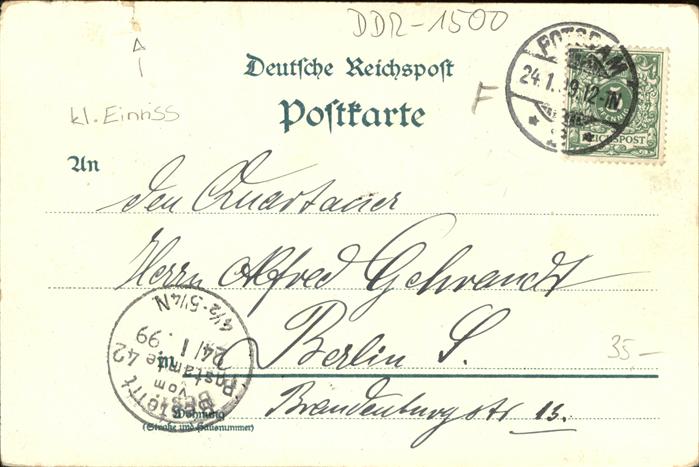 DDR-1500
kl. Einriss
Deutsche Reichspost
Postkarte
F
POTSDAM
24.1.99.12-1N
REICHSPOST
An
den Quartaner
Herrn Alfred Gehrandt
in Berlin S.
35,-
Wohnung
(Straße und Hausnummer)
Brandenburgstr 13.
Bestellt
vom
Postamte 42
24/1.99
4 1/2-5 1/4 N